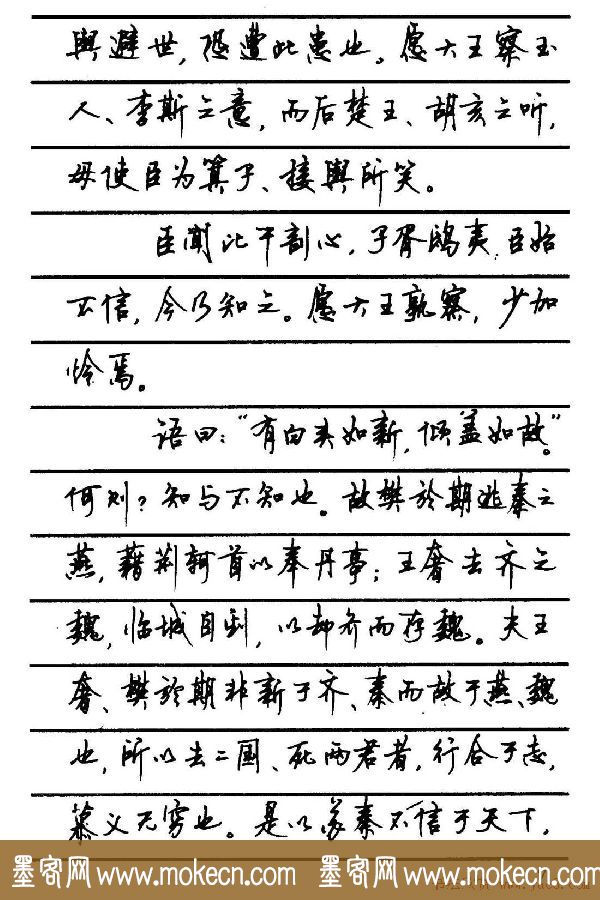 舆避世，恐遭此患也。愿大王察玉
人、李斯之意，而后楚王、胡亥之听，
毋使臣为箕子、接舆所笑。
臣闻比干剖心，子胥鸱夷，臣始
不信，今乃知之。愿大王孰察，少加
怜焉。
语曰：“有白头如新，倾盖如故。”
何则？知与不知也。故樊於期逃秦之
燕，藉荆轲首以奉丹事；王奢去齐之
魏，临城自刭，以却齐而存魏。夫王
奢、樊於期非新于齐、秦而故于燕、魏
也，所以去二国、死两君者，行合于志，
慕义无穷也。是以苏秦不信于天下，
墨客网 www.mokecn.com 墨客网 www.mokecn.com